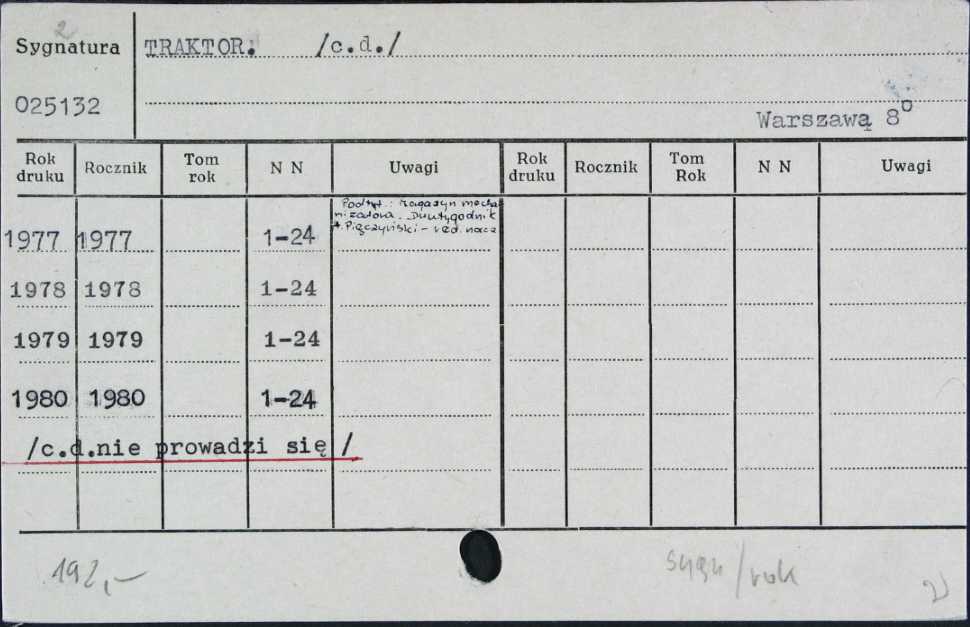 2
Sygnatura TRAKTOR. /c.d./
025132
Warszawą 8°
Rok druku Rocznik Tom rok N N Uwagi Rok druku Rocznik Tom Rok N N Uwagi
Podtyt.: Magazyn mecha
nizatora. Dwutygodnik
A. Pięczyński - red. nacz
1977 1977 1-24
1978 1978 1-24
1979 1979 1-24
1980 1980 1-24
/c.d.nie prowadzi się /
192,-
sygn/rok
2)